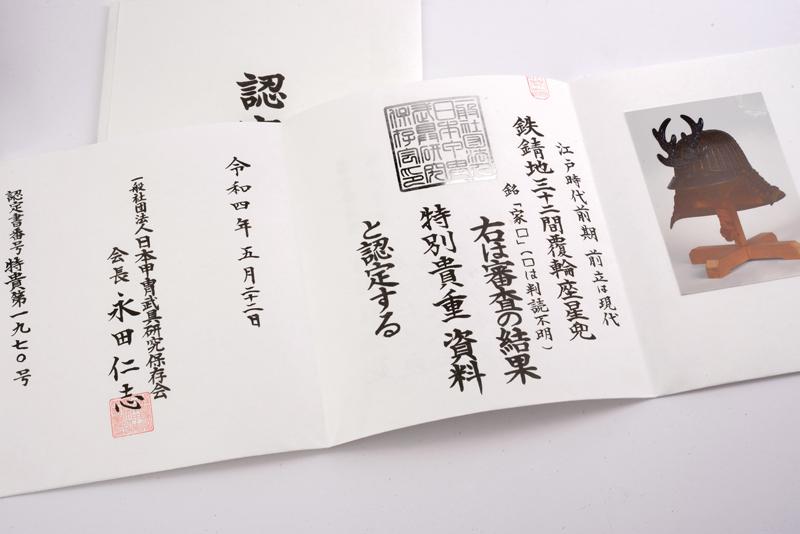 認
江戸時代前期 前立は現代
鉄錆地三十二間覆輪座星兜
銘「家□」(□は判読不明)
右は審査の結果
特別貴重 資料
と認定する
令和四年 五月二十二日
一般社団法人日本甲冑武具研究保存会
会長 永田仁志
認定書番号 特貴第一九七〇号